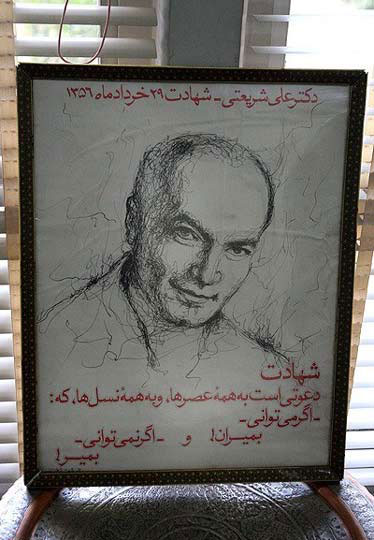 دکتر علی شریعتی - شهادت ۲۹ خردادماه ۱۳۵۶
شهادت
دعوتی است به همهٔ عصرها، و به همهٔ نسل‌ها، که:
- اگر می توانی -
بمیران! و - اگر نمی توانی -
بمیر!